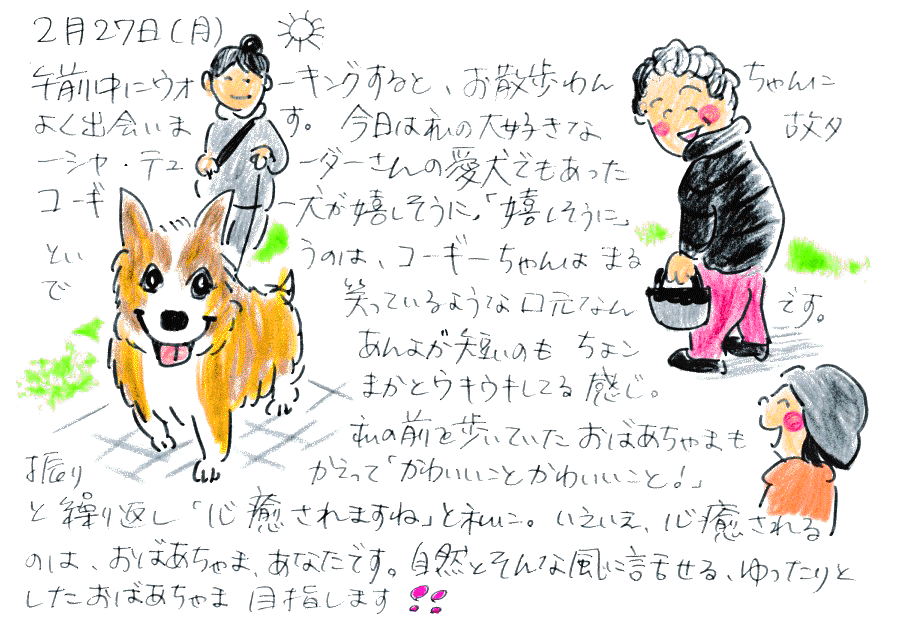 2月27日(月)
午前中にウォーキングすると、お散歩わんちゃんに
よく出会います。今日は私の大好きな故タ
ーシャ・テューダーさんの愛犬でもあった
コーギー犬が嬉しそうに。「嬉しそうに」
というのは、コーギーちゃんはまる
で笑っているような口元なんです。
あんよが短いのもちょン
まかとウキウキしてる感じ。
私の前を歩いていたおばあちゃまも
振りかえって「かわいいことかわいいこと!」
と繰り返し「心癒されますね」と私に。いえいえ、心癒される
のは、おばあちゃま、あなたです。自然とそんな風に話せる、ゆったりと
したおばあちゃま目指します!!